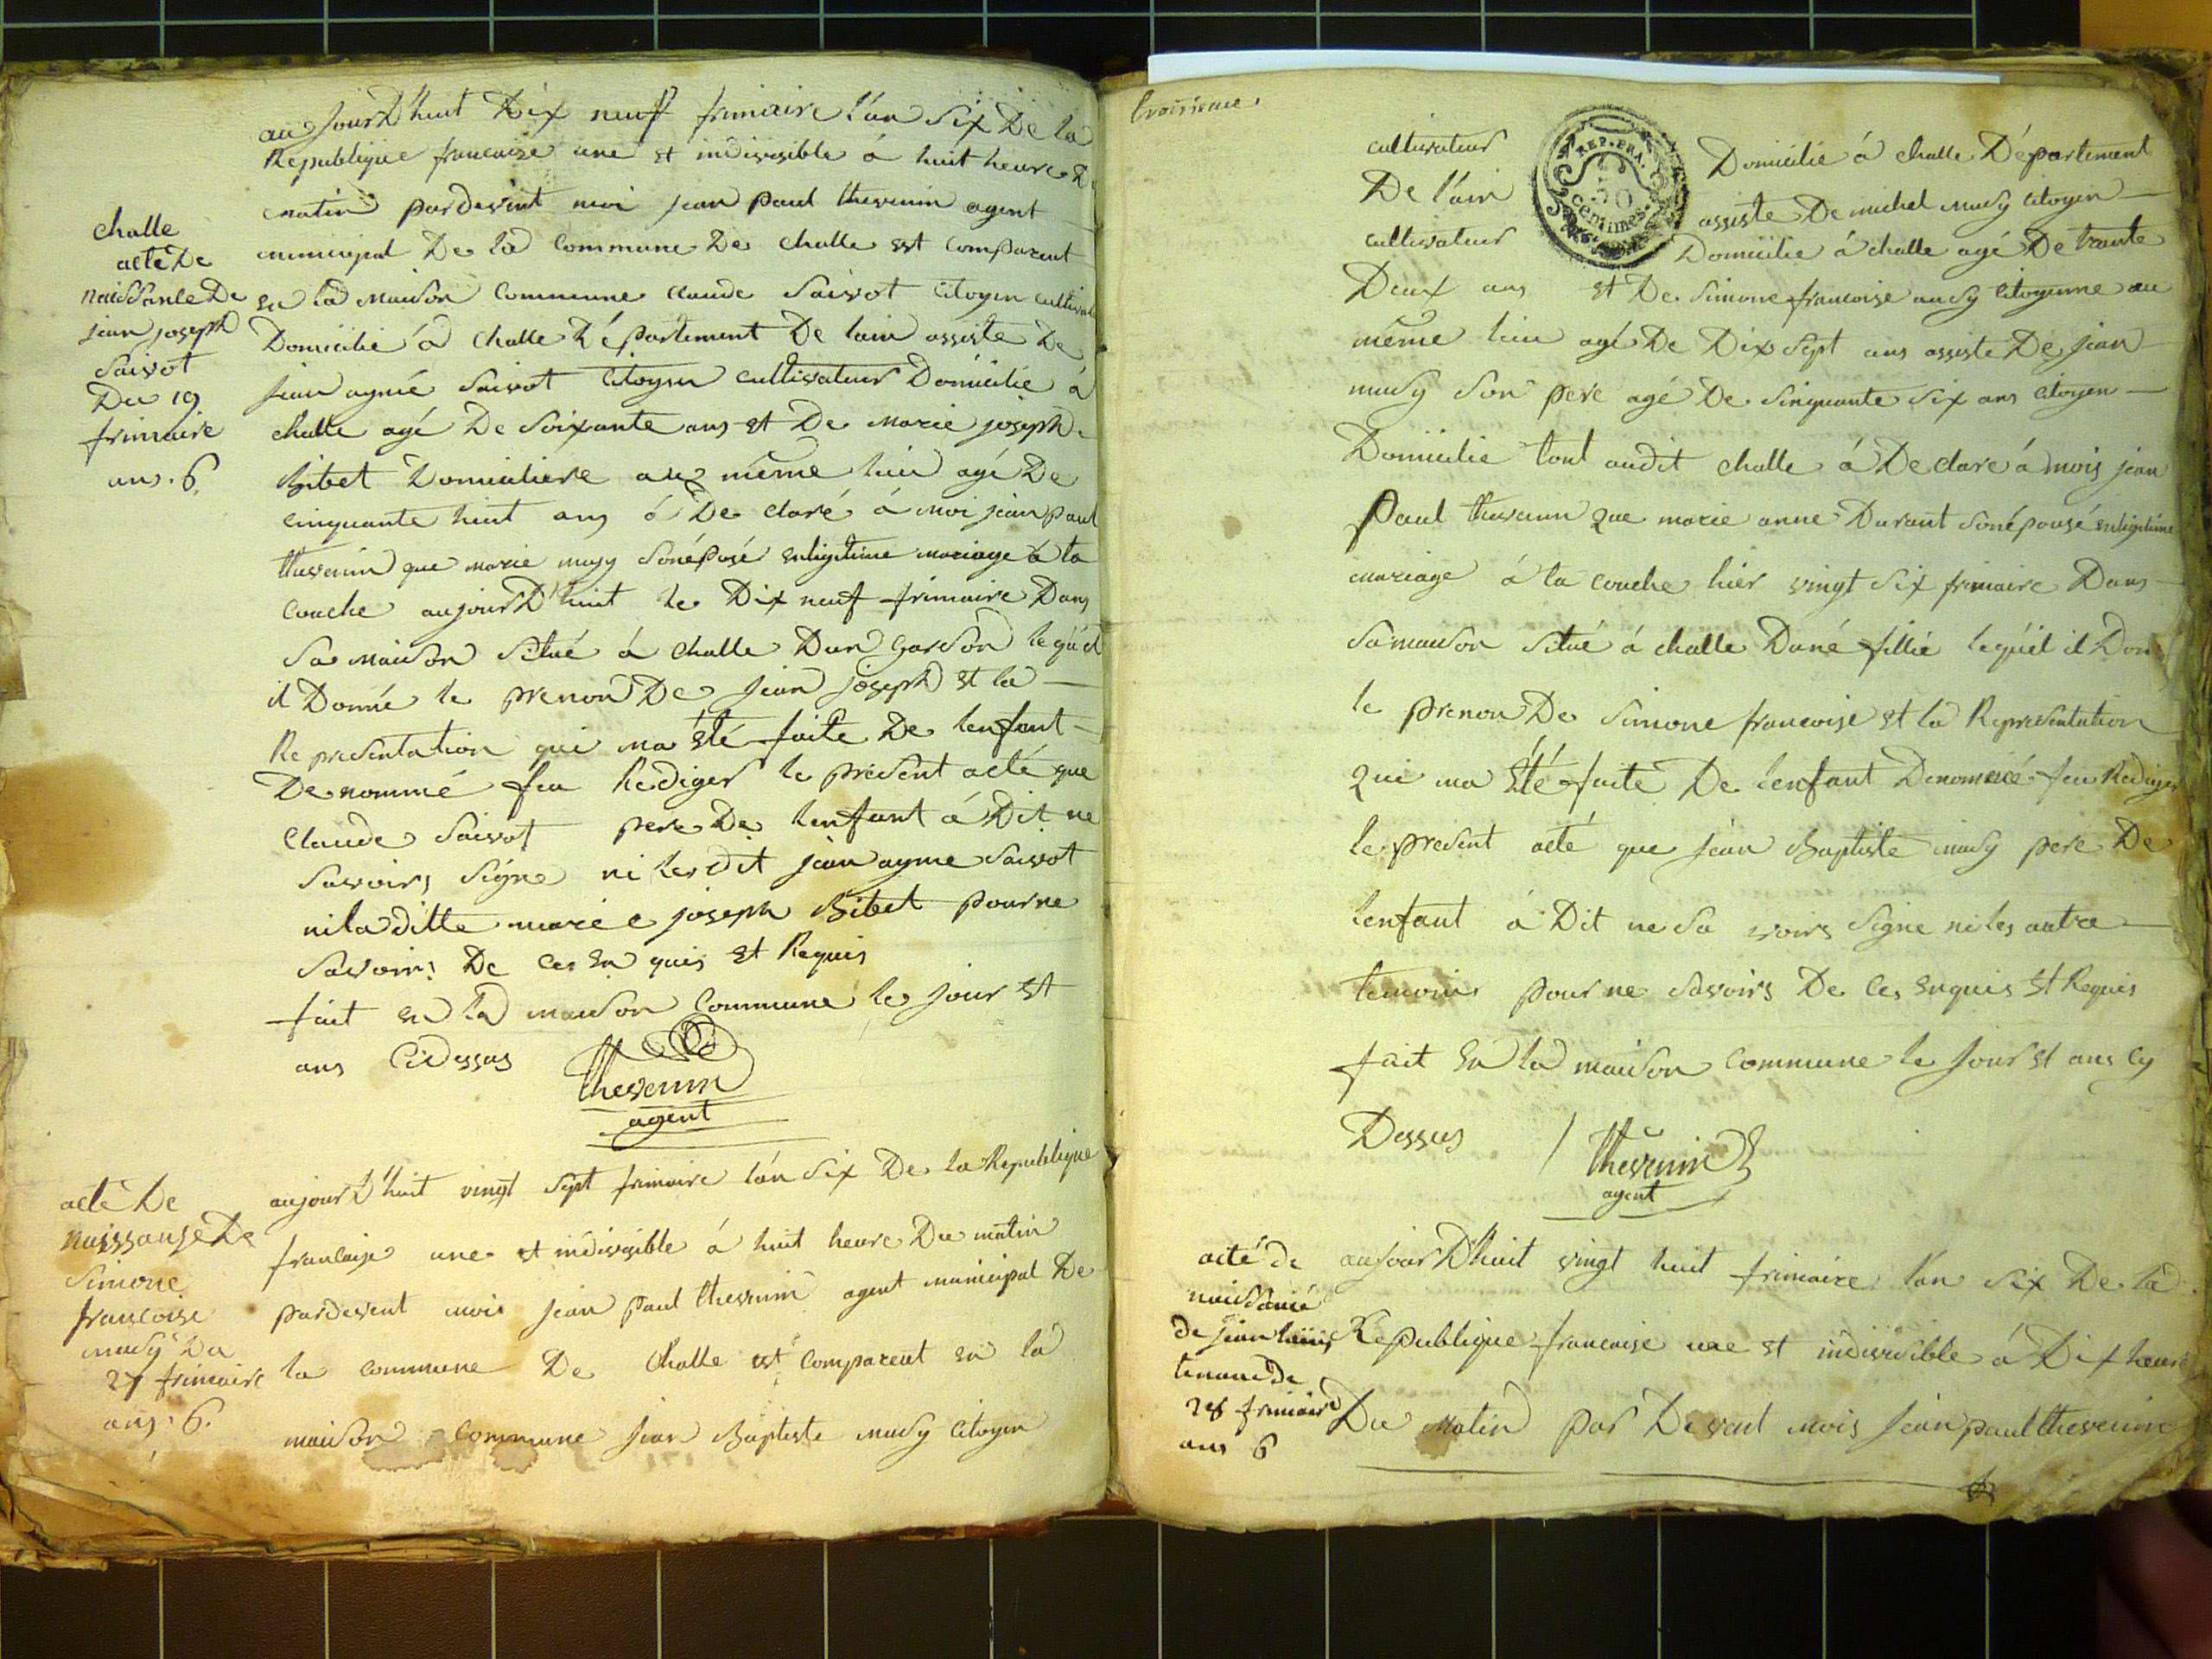 aujourD'huit Dix neuf frimaire l'an Six De la
Republique francaise une et indivisible à huit heure Du
matin pardevent moi jean paul thevenin agent
municipal De la Commune De challe est Comparent
en la maison Commune claude Saivot Citoyen cultivat
Domicilié à Challe Département De lain assiste De
jean aymé Saivot Citoyen cultivateur Domicilié à
challe agé De Soixante ans et De marie joseph
Bibet Domiciliere au même lieu agé De
cinquante huit ans à De claré à moi jean paul
thevenin que marie musy Sonéposé enligitime mariage à la
couche aujourD'huit le Dix neuf frimaire Dans
Sa maison Situé à challe Dun garson lequel
il Donné le prenon De jean joseph et la
Representation qui ma été faite De lenfant
Denommé feu Rediger le present acté que
claude Saivot pere De lenfant à Dit ne
Savoirs Signe ni lesdit jean ayme Saivot
ni la ditte marie joseph Bibet pour ne
Savoirs De ces en quis et Requis
fait en la maison Commune le jour et
ans CiDessus
thevenin
agent
challe
acte De
naissance De
jean joseph
Saivot
Du 19
frimaire
ans. 6.
aujourD'huit vingt Sept frimaire l'an Six De la Republique
francaise une et indivisible à huit heure Du matin
pardevent mois jean paul thevenin agent municipal De
la commune De Challe est comparent en la
maison commune jean Baptiste musy Citoyen
acté De
naissanse De
Simone
francoise
musy Du
27 frimaire
ans. 6.
troisieme
cultivateur Domicilié à challe Département
De l'ain assiste De michel musy Citoyen
cultivateur Domicilié à challe agé De trante
Deux ans et De Simone francoise musy Citoyenne au
même lieu agé De Dix Sept ans assiste De jean
musy Son pere agé De Sinquante Six ans Citoyen
Domicilie tout audit challe à Declaré à mois jean
Paul thevenin que marie anne Durant Sonépousé enligitime
mariage à la couche hier vingt Six frimaire Dans
Sa maison Situé à challe Duné fillié lequél il Don
le prenon De Simone francoise et la Representation
qui ma été faite De lenfant Denommé feu Rediger
le present acté que jean Baptiste musy pere De
lenfant à Dit ne Sa voirs Signe ni les autre
temoins pour ne Savoirs De ces enquis et Requis
fait en la maison Commune le jour et ans cy
Dessus
thevenin
agent
REP. FRA.
50
centimes
acté de
naissancé
de jean
28 frimaire
ans 6
aujourDhuit vingt huit frimaire l'an Six De la
République francaise une et indivisible à Dix heure
Du Matin par Devent mois jean paul thevenin